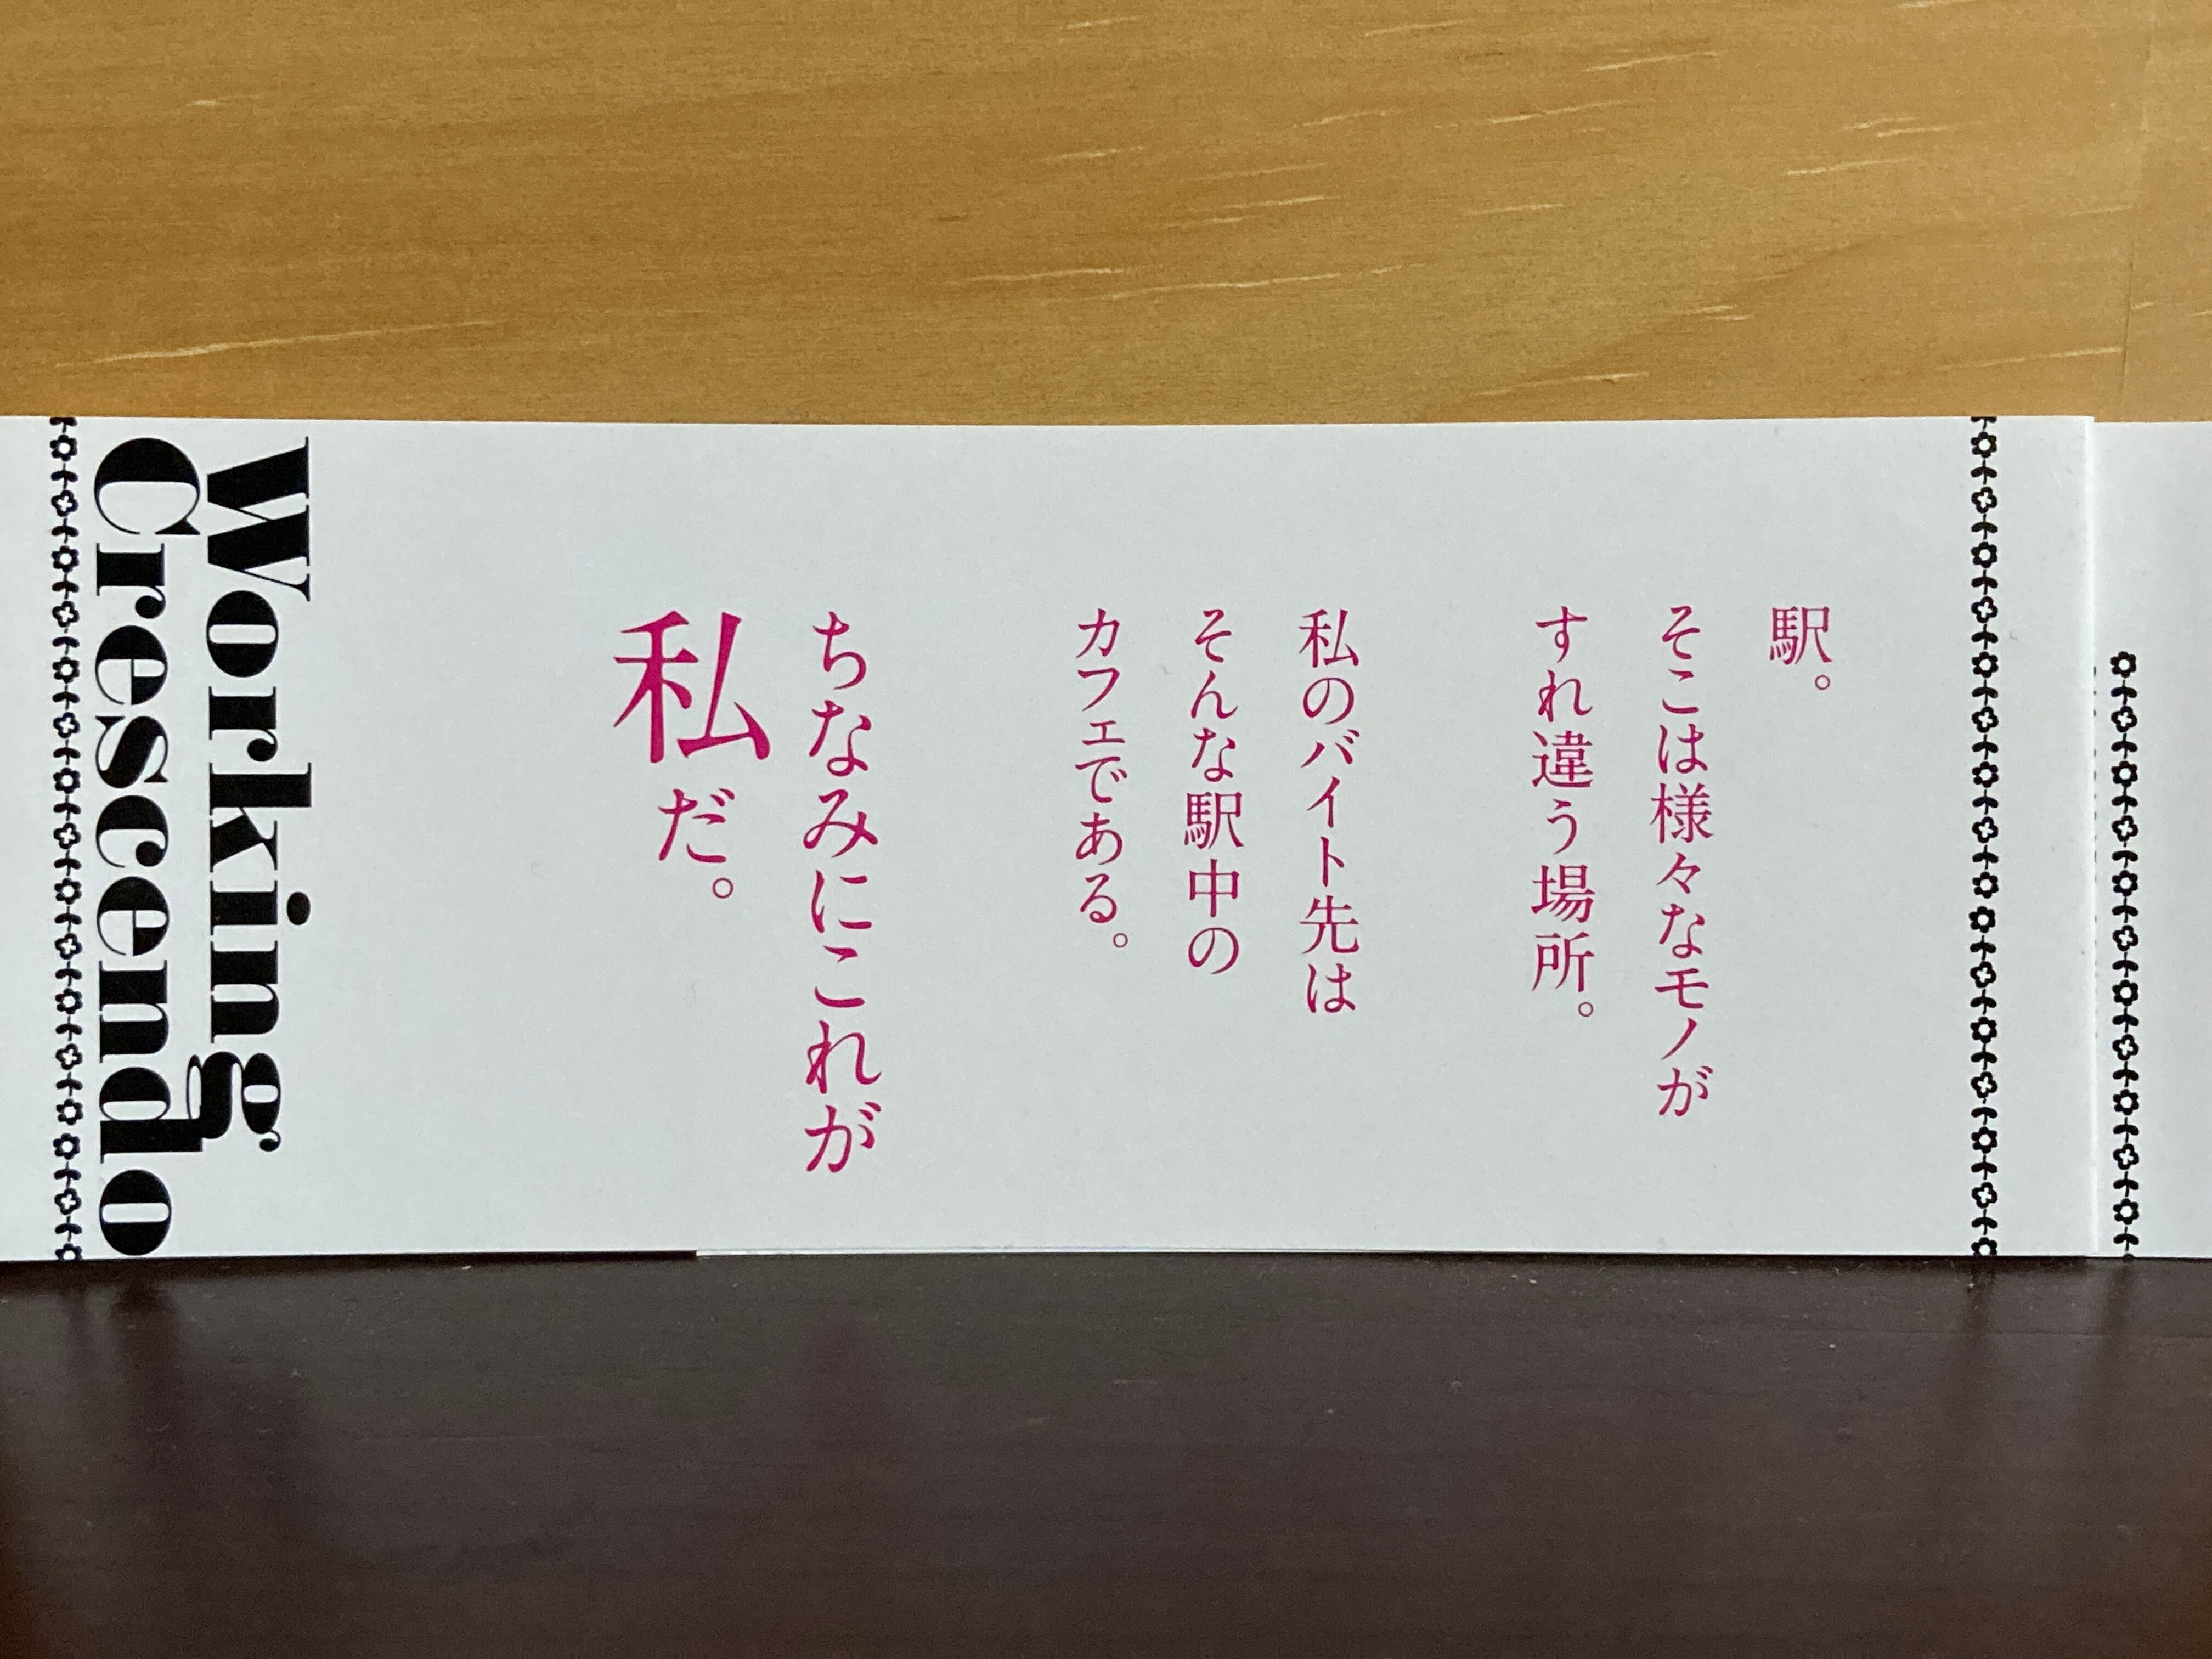 駅。
そこは様々なモノが
すれ違う場所。
私のバイト先は
そんな駅中の
カフェである。
ちなみにこれが
私だ。
Working
Crescendo